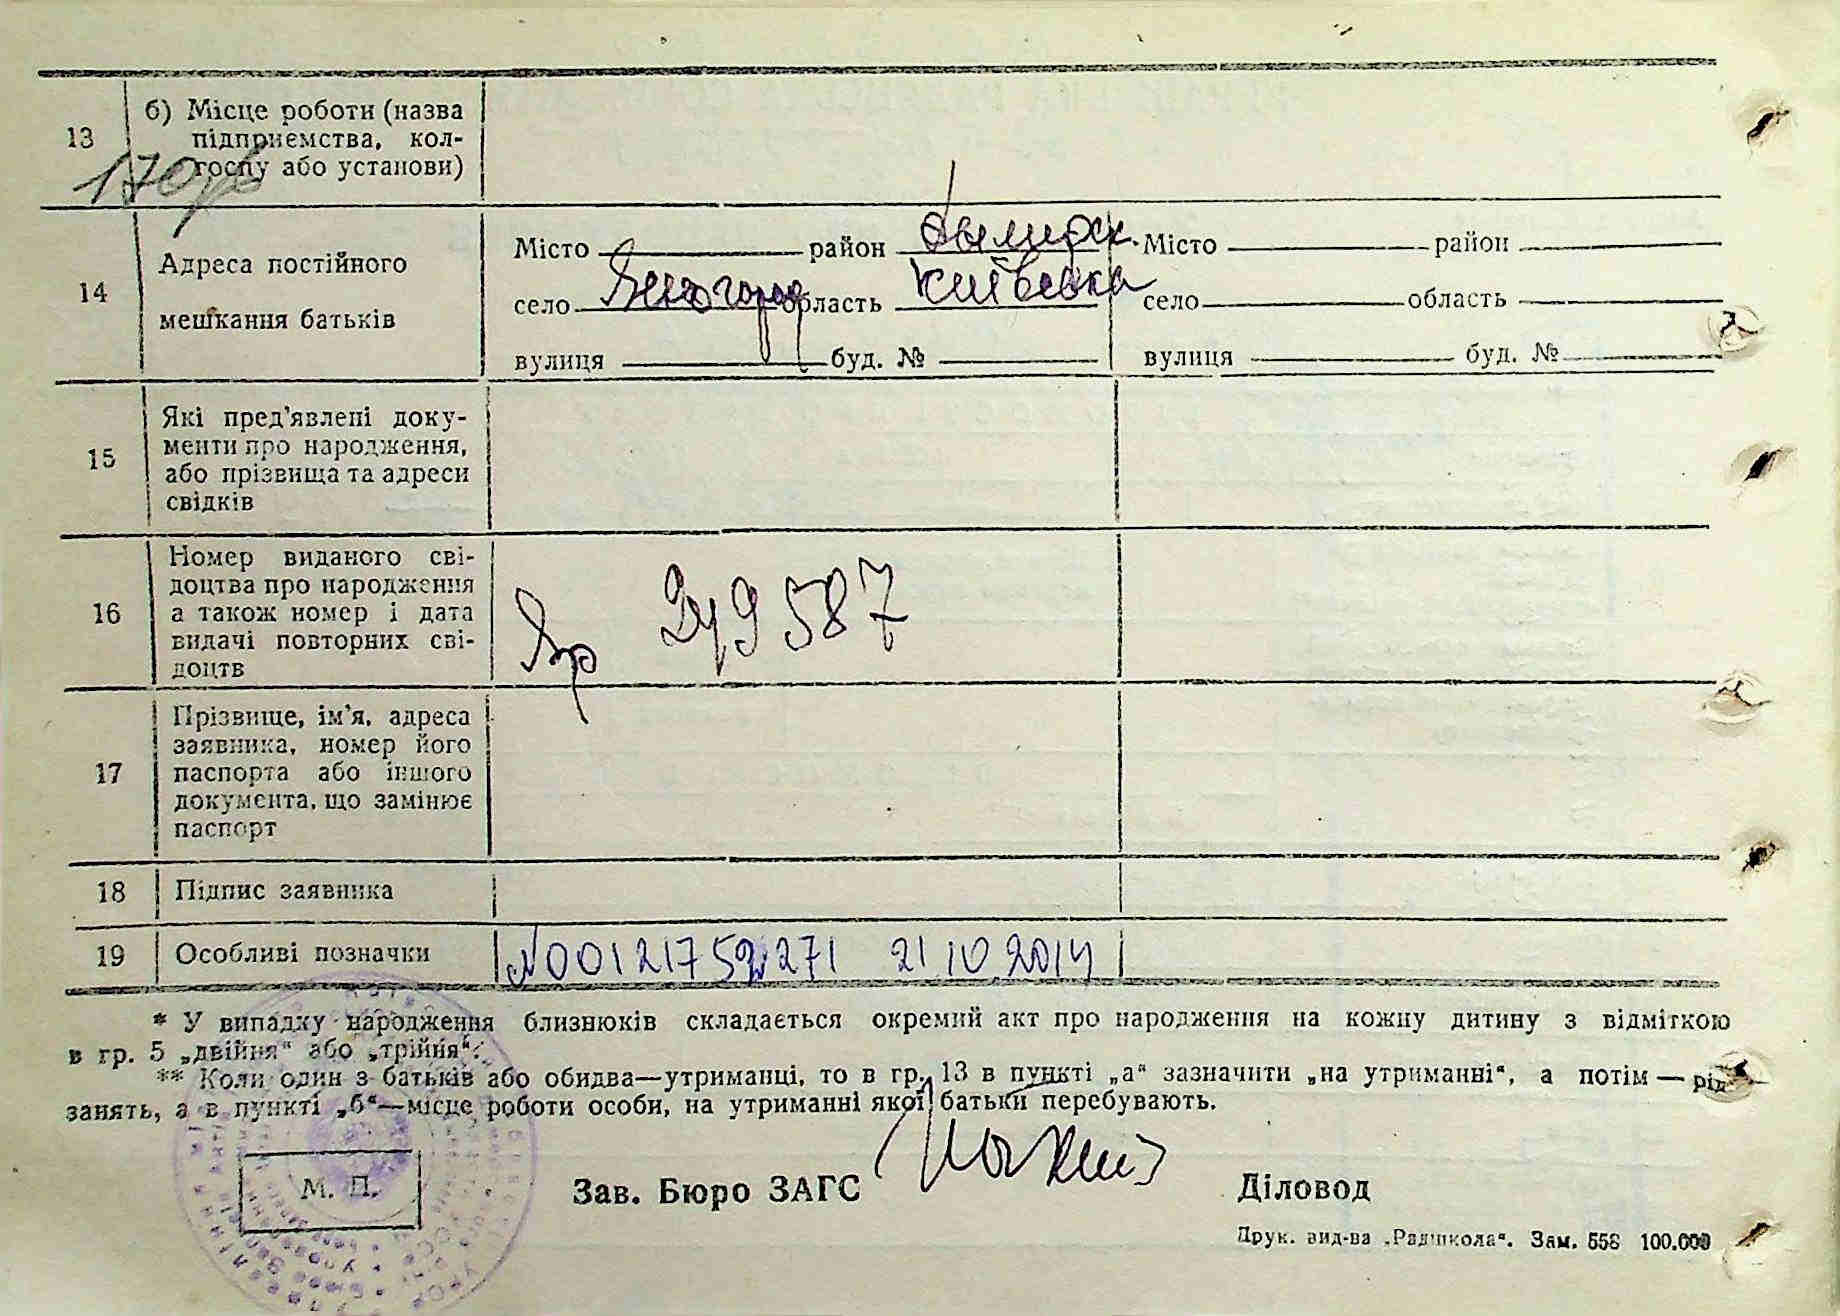 13
б) Місце роботи (назва
підприємства, кол-
госпу або установи)
14
Адреса постійного
мешкання батьків
Місто район Димирск. Місто район
село область Київська село область
вулиця буд. № вулиця буд. №
15
Які пред'явлені доку-
менти про народження,
або прізвища та адреси
свідків
16
Номер виданого сві-
доцтва про народження
а також номер і дата
видачі повторних сві-
доцтв
587
17
Прізвище, ім'я, адреса
заявника, номер його
паспорта або іншого
документа, що замінює
паспорт
18 Підпис заявника
19 Особливі позначки N00121752271 21.10.2014
* У випадку народження близнюків складається окремий акт про народження на кожну дитину з відміткою
в гр. 5 „двійня“ або „трійня“.
** Коли один з батьків або обидва—утриманці, то в гр. 13 в пункті „а“ зазначити „на утриманні“, а потім — рід
занять, а в пункті „б“—місце роботи особи, на утриманні якої батьки перебувають.
М. П.
Зав. Бюро ЗАГС
Діловод
Друк. вид-ва „Радшкола“. Зам. 558 100.000